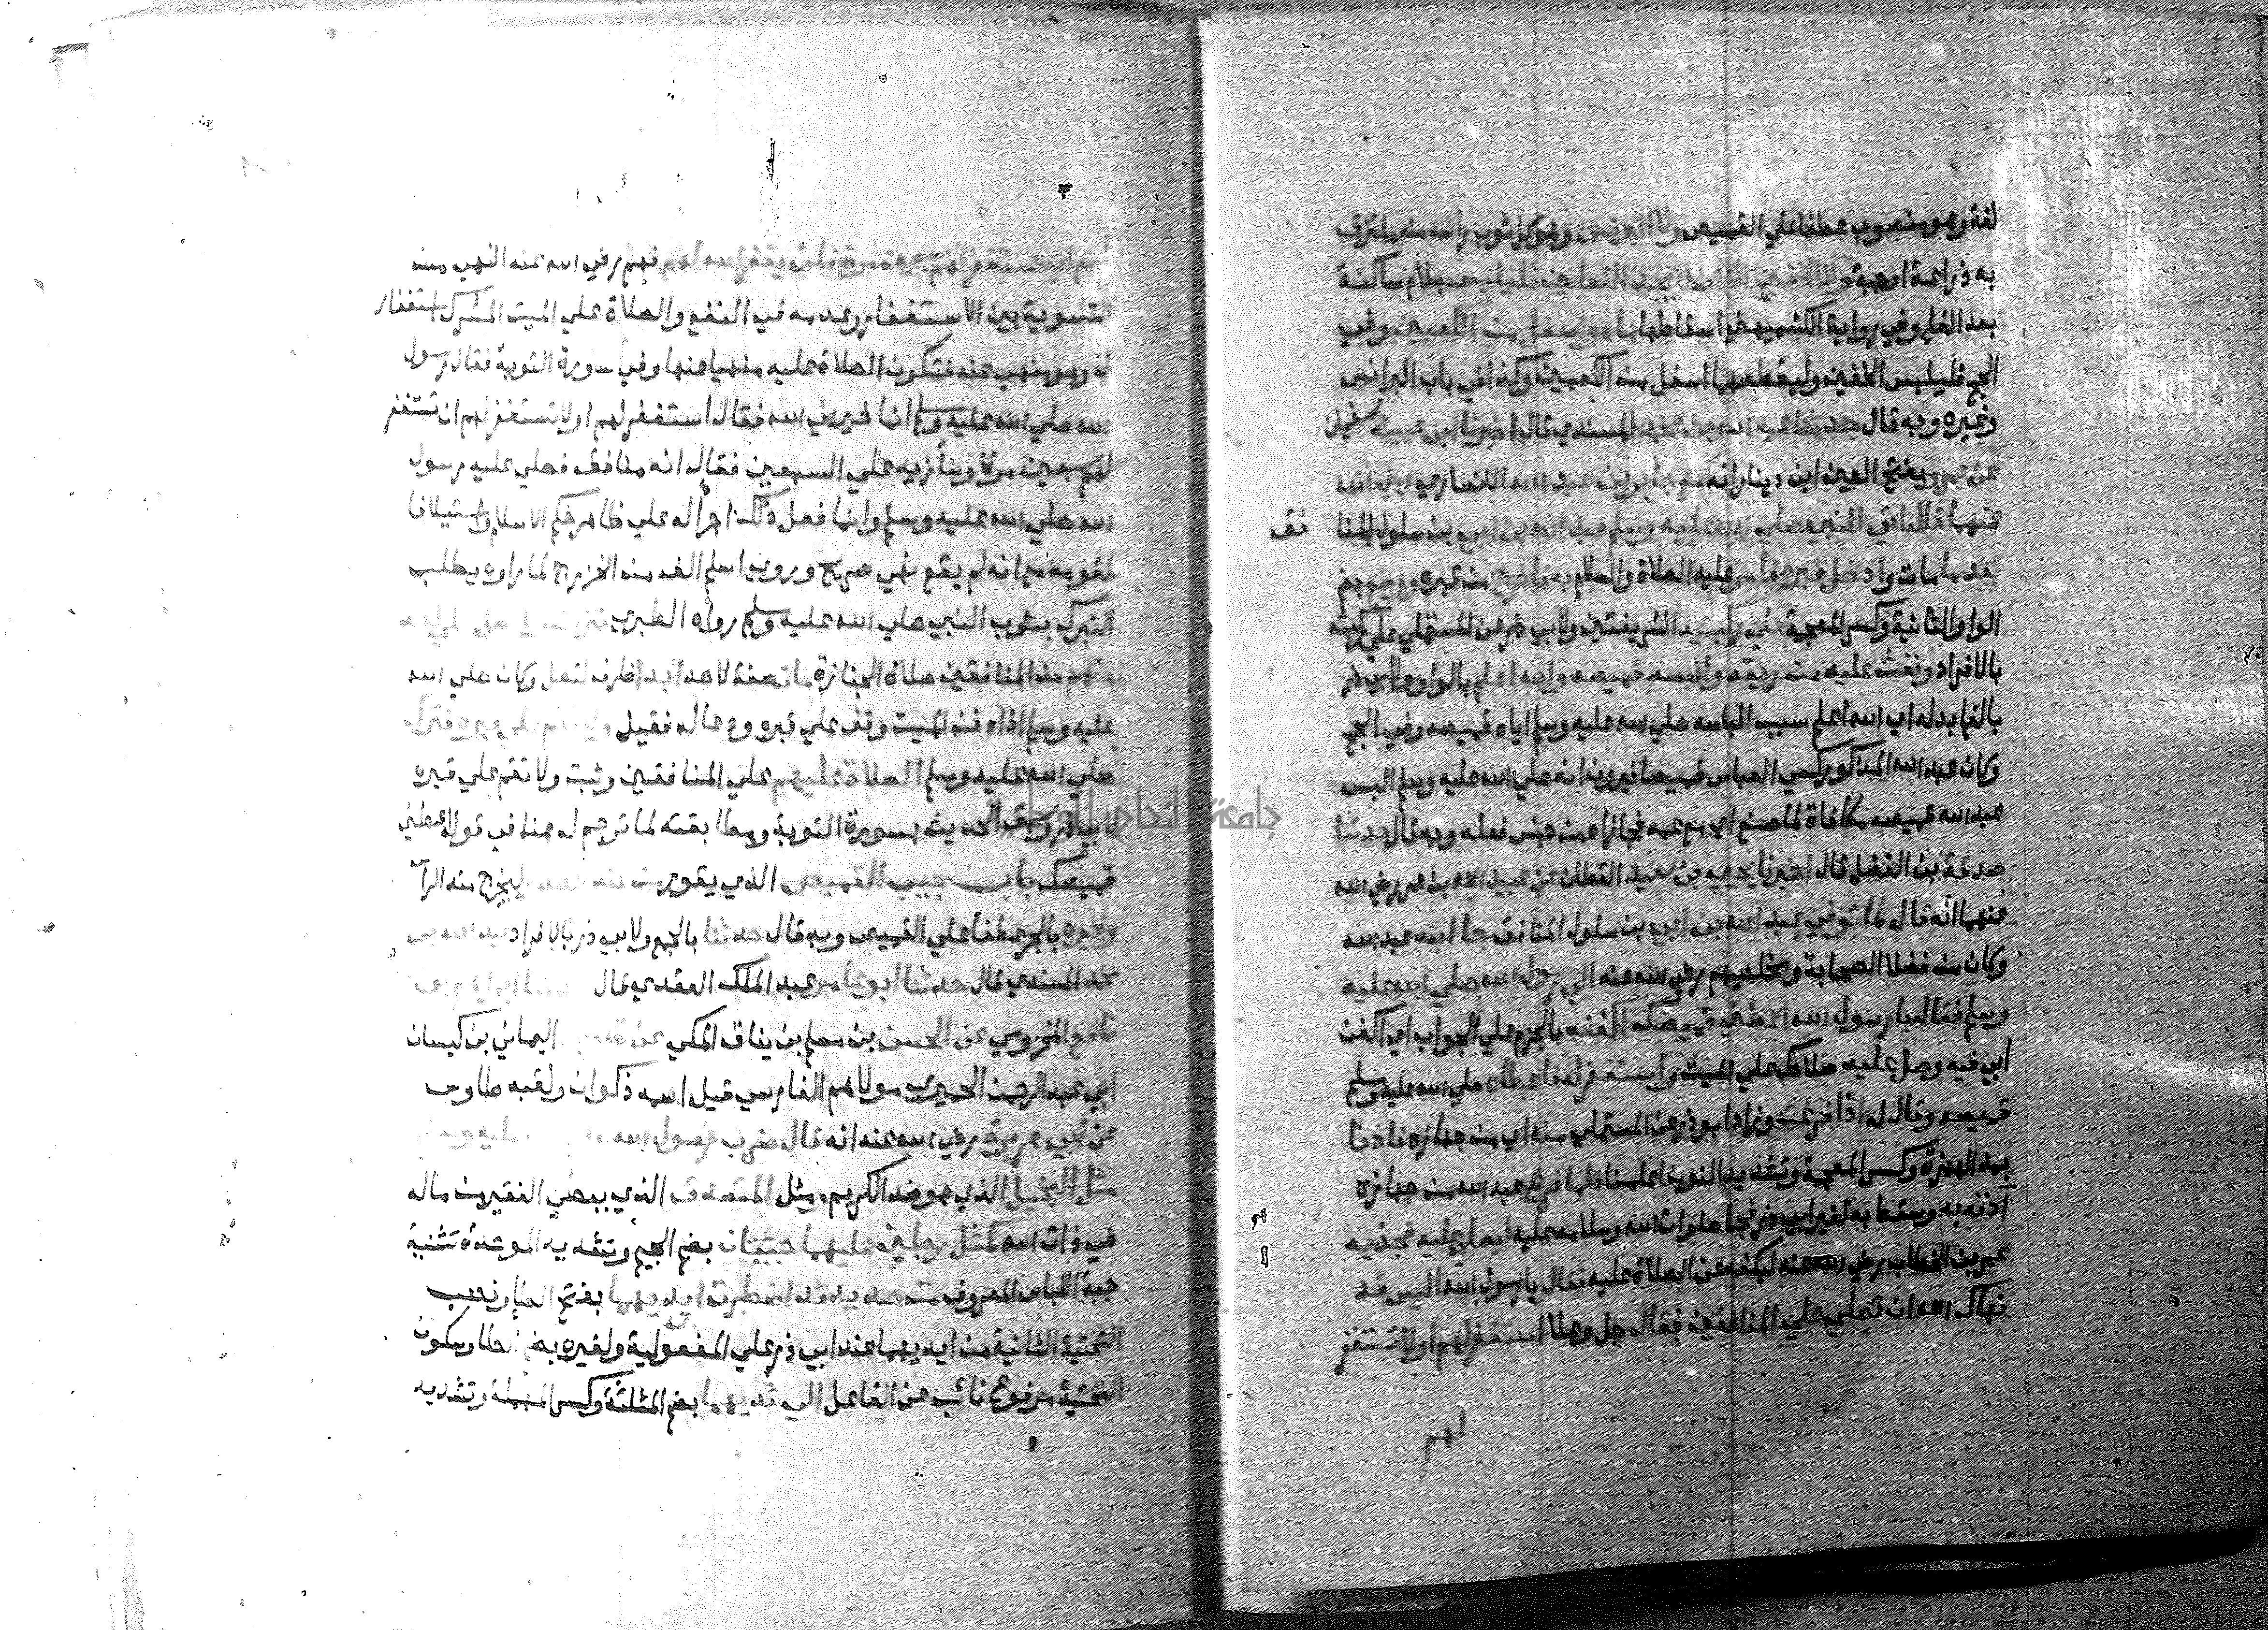 لغة وهو منصوب عطفا علي القميص ولا البرنس وهو كل ثوب راسه منه ملتزق
به دراعة او جبة ولا الخفين الا ان لا يجد النعلين فليلبس بلام ساكنة
بعد الفاء وفي رواية الكشميهني اسقاطها ما هو اسفل من الكعبين وفي
الحج فليلبس الخفين وليقطعهما اسفل من الكعبين وكذا في باب البرانس
وغيره وبه قال حدثنا عبد الله بن محمد المسندي قال اخبرنا ابن عيينة سفيان
عن عمرو بفتح العين ابن دينار انه سمع جابر بن عبد الله الانصاري رضي الله
عنهما قال اتي النبي صلي الله عليه وسلم عبد الله بن ابي بن سلول المنا فق
بعد ما مات وادخل قبره فامر عليه الصلاة والسلام به فاخرج من قبره ووضع بضم
الواو الثانية وكسر المعجمة علي ركبتيه الشريفتين ولابي ذر عن المستملي علي ركبته
بالافراد ونفث عليه من ريقه والبسه قميصه والله اعلم بالواو ولابي ذر
بالفاء بدله اي الله اعلم سبب الباسه صلي الله عليه وسلم اياه قميصه وفي الحج
وكان عبد الله المذكور كسي العباس قميصا فيرون انه صلي الله عليه وسلم البس
عبد الله قميصه مكافاة لما صنع اي مع عمه فجازاه من جنس فعله وبه قال حدثنا
صدقة بن الفضل قال اخبرنا يحيي بن سعيد القطان عن عبيد الله بن عمر رضي الله
عنهما انه قال لما توفي عبد الله بن ابي بن سلول المنافق جا ابنه عبد الله
وكان من فضلا الصحابة ومخلصيهم رضي الله عنه الي رسول الله صلي الله عليه
وسلم فقال يا رسول الله اعطني قميصك اكفنه بالجزم علي الجواب اي اكفن
ابي فيه وصل عليه صلاتك علي الميت واستغفر له فاعطاه صلي الله عليه وسلم
قميصه وقال له اذا فرغت وزاد ابو ذر عن المستملي منه اي من جهازه فاذنا
بمد الهمزة وكسر المعجمة وتشديد النون اعلمنا فلما فرغ عبد الله من جهازه
آذنه به وسقط به لغير ابي ذر فجا صلوات الله وسلامه عليه ليصلي عليه فجذبه
عمر بن الخطاب رضي الله عنه ليكفه عن الصلاة عليه فقال يا رسول الله اليس قد
نهاك الله ان تصلي علي المنافقين فقال جل وعلا استغفر لهم او لا تستغفر
لهم
لهم ان تستغفر لهم سبعين مرة فلن يغفر الله لهم ففهم رضي الله عنه النهي من
التسوية بين الاستغفار وعدمه في النفع والصلاة علي الميت المشرك استغفار
له وهو منهي عنه فتكون الصلاة عليه منهيا عنها وفي سورة التوبة فقال رسول
الله صلي الله عليه وسلم انما خيرني الله فقال استغفر لهم او لا تستغفر لهم ان تستغفر
لهم سبعين مرة وسأزيد علي السبعين فقال انه منافق فصلي عليه رسول
الله صلي الله عليه وسلم وانما فعل ذلك اجرأ له علي ظاهر حكم الاسلام واستيلافا
لقومه مع انه لم يقع نهي صريح وروي اسلم الف من الخزرج لما راوه يطلب
التبرك بثوب النبي صلي الله عليه وسلم رواه الطبري
منهم من المنافقين صلاة الجنازة مات صفة لاحد ابدا ظرف لتصل وكان صلي الله
عليه وسلم اذا دفن الميت وقف علي قبره ودعا له فقيل
صلي الله عليه وسلم الصلاة عليهم علي المنافقين وثبت ولا تقم علي قبره
لابي ذر وسبق الحديث بسورة التوبة ومطابقته لما ترجم له هنا في قوله اعطني
قميصك باب جيب القميص الذي يقور ليخرج منه الرأس
وغيره بالجر عطفا علي القميص وبه قال حدثنا بالجمع ولابي ذر بالافراد عبد الله بن
محمد المسندي قال حدثنا ابو عامر عبد الملك العقدي قال
نافع المخزومي عن الحسن بن مسلم بن يناق المكي عن اليماني بن كيسان
ابي عبد الرحمن الحميري مولاهم الفارسي قيل اسمه ذكوان ولقبه طاوس
عن ابي هريرة رضي الله عنه انه قال ضرب رسول الله
مثل البخيل الذي هو ضد الكريم ومثل المتصدق الذي يعطي الفقير من ماله
في ذات الله كمثل رجلين عليهما جبتان بضم الجيم وتشديد الموحدة تثنية
جبة اللباس المعروف من حديد قد اضطرت ايديهما بفتح الطا ونصب
التحتية الثانية من ايديهما عند ابي ذر علي المفعولية ولغيره بضم الطا وسكون
التحتية مرفوع نائب عن الفاعل الي ثديهما بضم المثلثة وكسر المهملة وتشديد